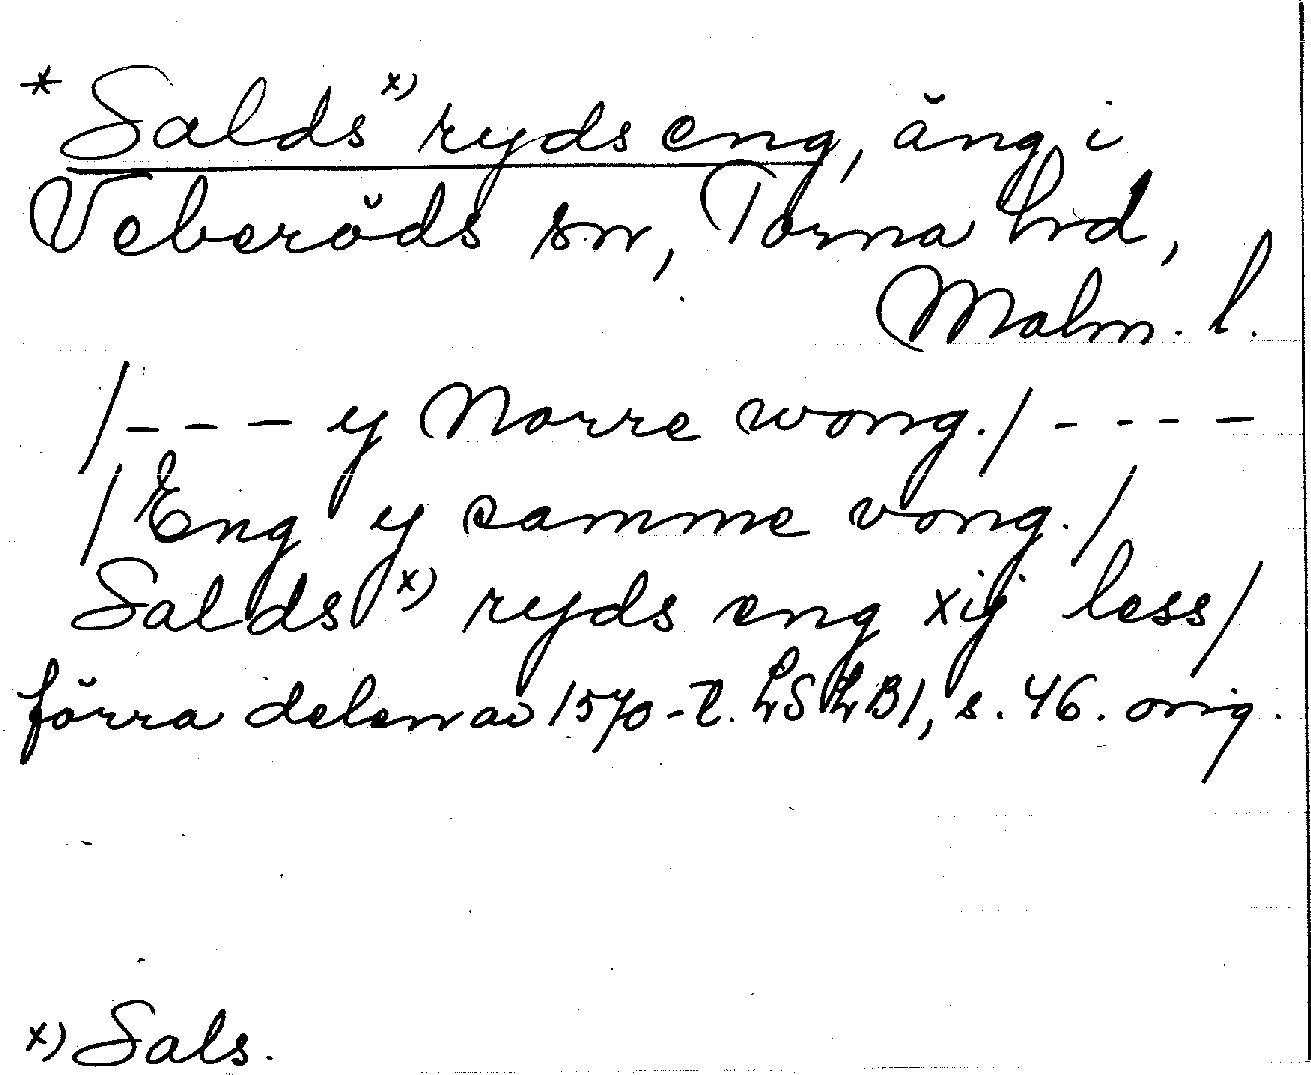 * Salds x) ryds eng, äng i
Veberöds sn, Torna hd,
Malm. l.
/- - - y Norre wong./ - - - -
/Eng y samme vong./
Salds x) ryds eng xij less/
förra delen av 1570-t. LSLB1, s. 46. orig.
x) Sals.